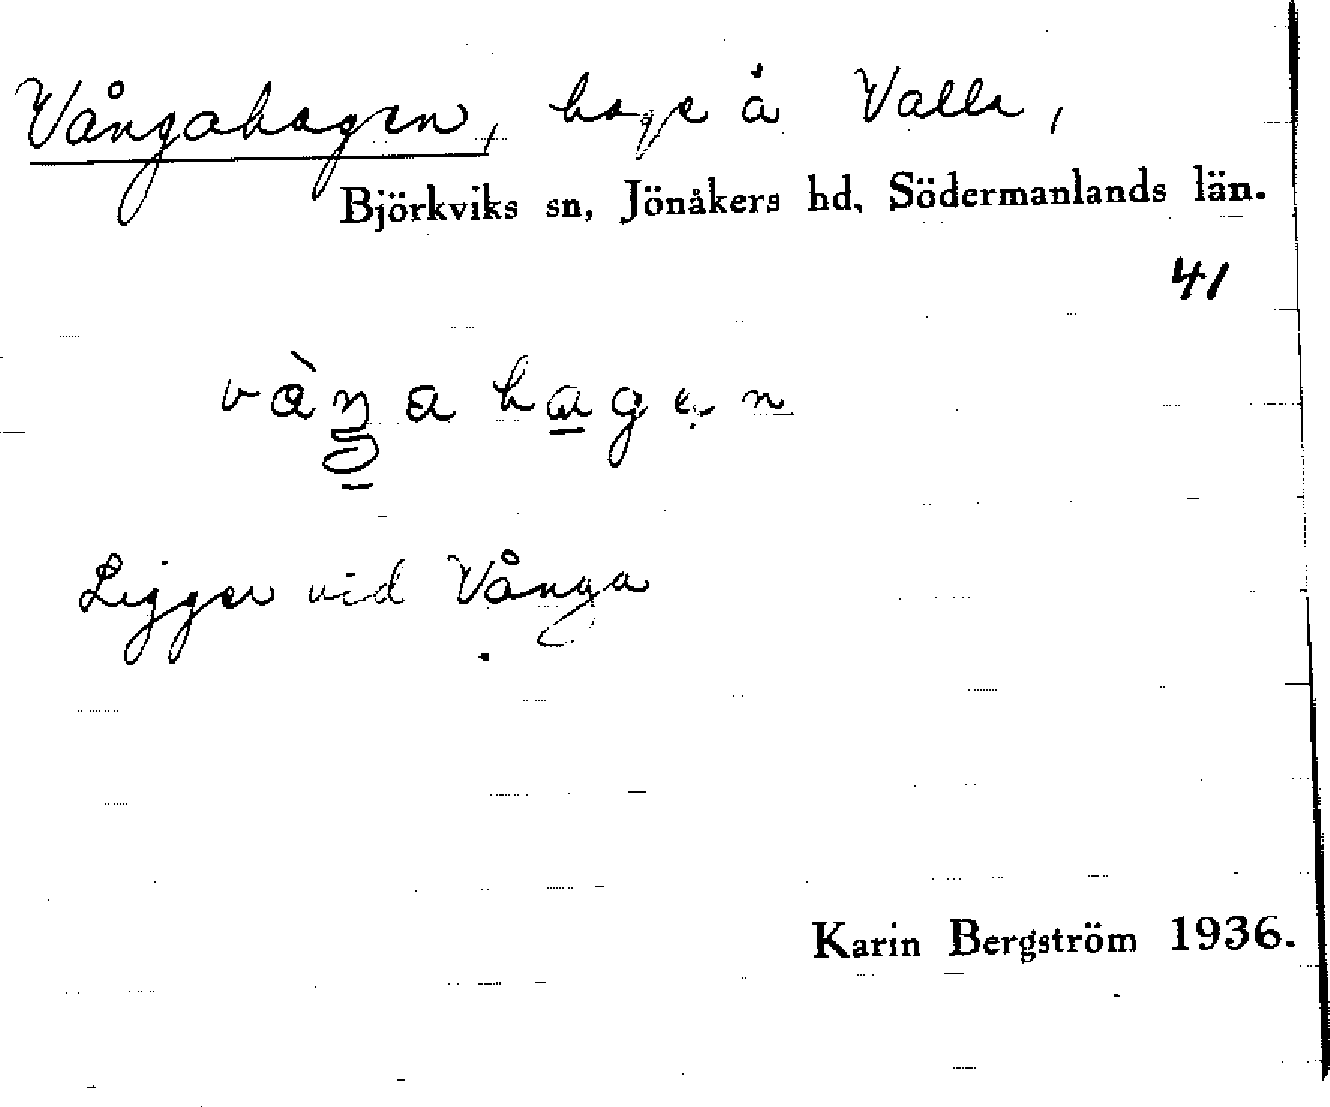 Vångahagen, hage å Valla,
Björkviks sn, Jönåkers hd, Södermanlands län.
41
vàŋahagen
Ligger vid Vånga
Karin Bergström 1936.